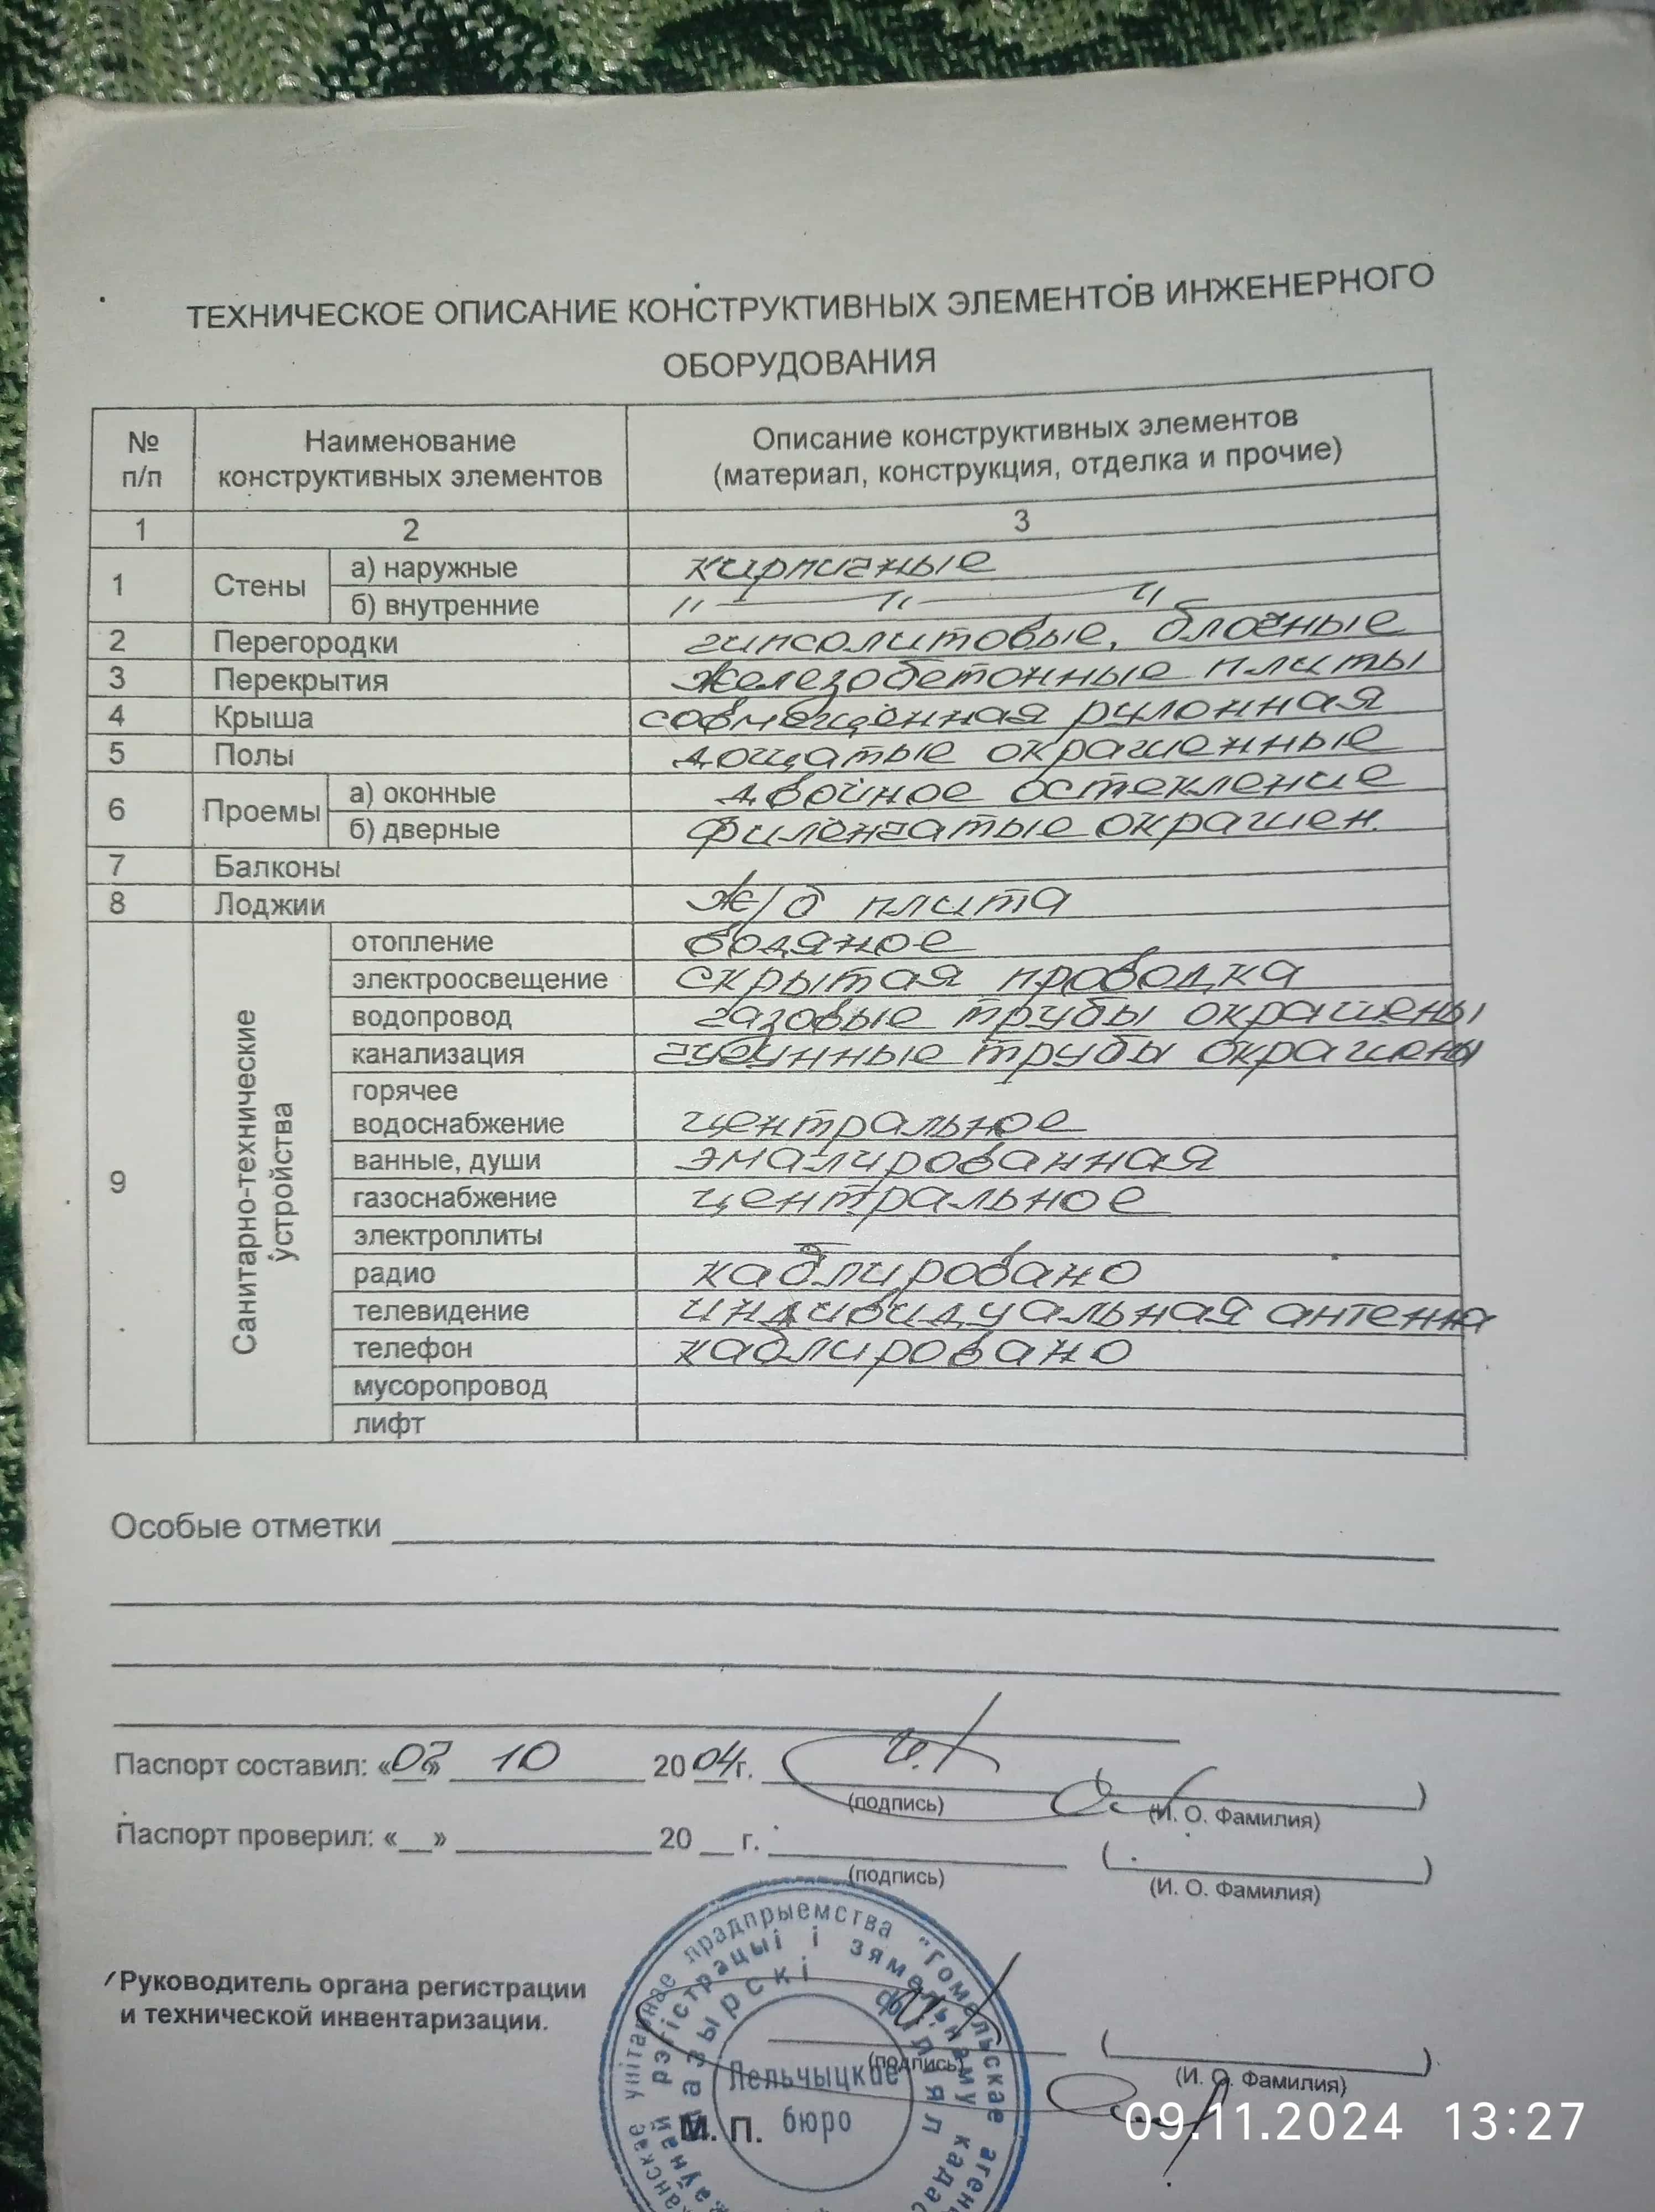 ТЕХНИЧЕСКОЕ ОПИСАНИЕ КОНСТРУКТИВНЫХ ЭЛЕМЕНТОВ ИНЖЕНЕРНОГО
ОБОРУДОВАНИЯ
№ п/п Наименование конструктивных элементов Описание конструктивных элементов (материал, конструкция, отделка и прочие)
1 2 3
1 Стены а) наружные кирпичные
б) внутренние —"— "— "
2 Перегородки гипсолитовые, блочные
3 Перекрытия железобетонные плиты
4 Крыша совмещённая рулонная
5 Полы дощатые окрашенные
6 Проемы а) оконные двойное остекление
б) дверные филёнчатые окрашен.
7 Балконы
8 Лоджии ж/б плита
9 Санитарно-технические устройства отопление водяное
электроосвещение скрытая проводка
водопровод газовые трубы окрашены
канализация чугунные трубы окрашены
горячее
водоснабжение центральное
ванные, души эмалированная
газоснабжение центральное
электроплиты
радио каблировано
телевидение индивидуальная антенна
телефон каблировано
мусоропровод
лифт
Особые отметки
Паспорт составил: «07» 10 2004г.
(подпись) (И. О. Фамилия)
Паспорт проверил: «__» 20 __ г. ( )
(подпись) (И. О. Фамилия)
Руководитель органа регистрации
и технической инвентаризации. ( )
(подпись) (И. О. Фамилия)
М. П.
унітарнае прадпрыемства "Гомельскае
рэгістрацыі і зямельнаму
мазырскі філіял
Лельчыцкае
бюро
09.11.2024 13:27